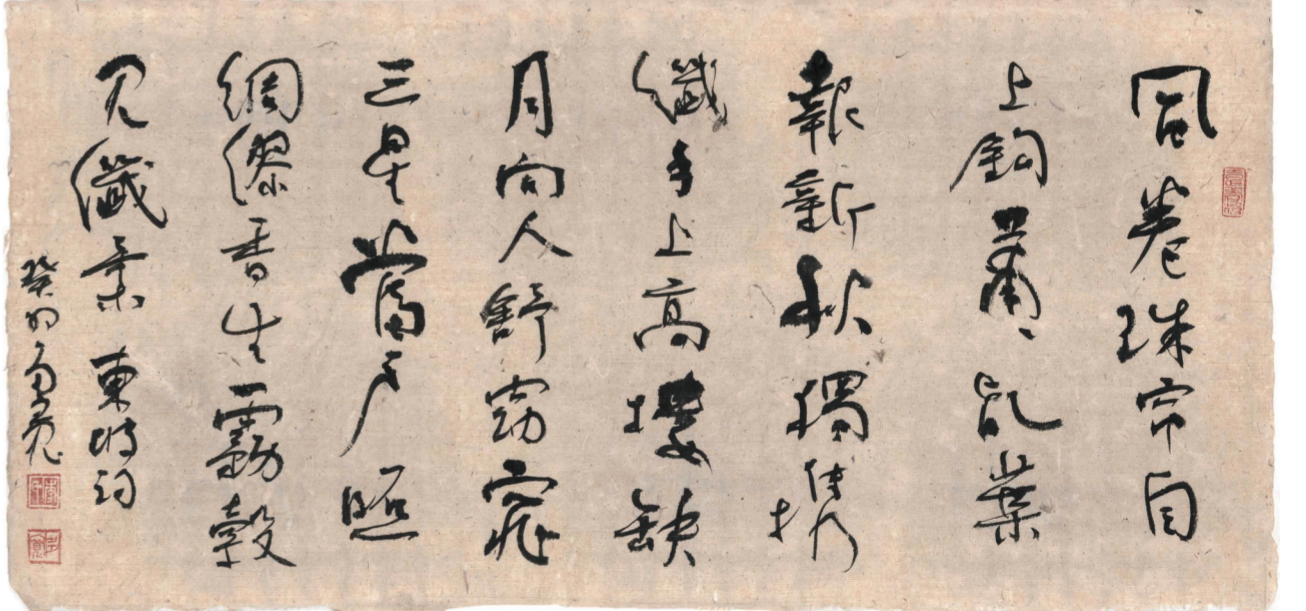 風卷珠帘自
上鈎蕭〻乱葉
報新秋獨携
纖手上高樓缺
月向人舒窈窕
三星當戶照
綢繆香生霧縠
見纖柔 東坡詞
癸卯